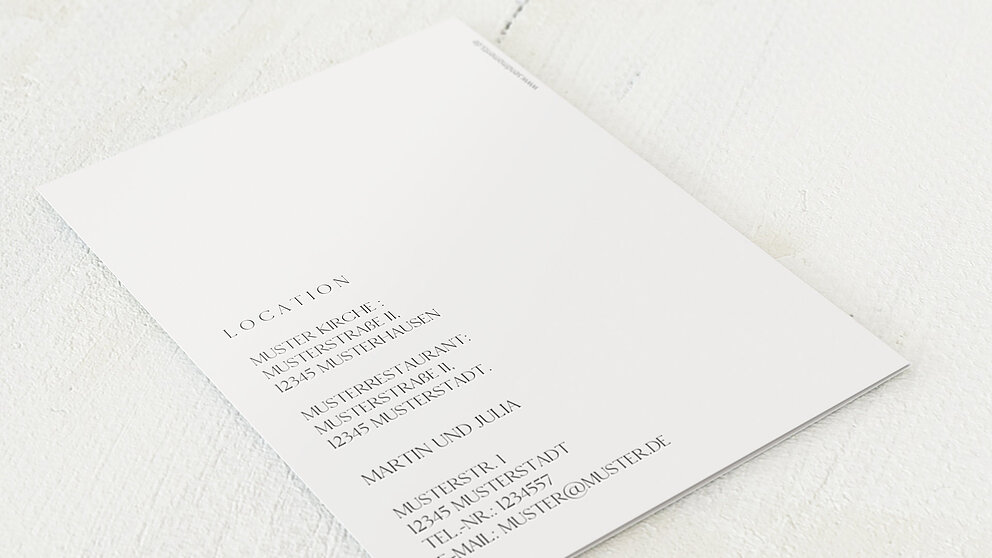 LOCATION
MUSTER KIRCHE :
MUSTERSTRAßE 11.
12345 MUSTERHAUSEN
MUSTERRESTAURANT:
MUSTERSTRAßE 11.
12345 MUSTERSTADT.
MARTIN UND JULIA
MUSTERSTR. 1
12345 MUSTERSTADT
TEL.-NR.: 1234557
E-MAIL: MUSTER@MUSTER.DE